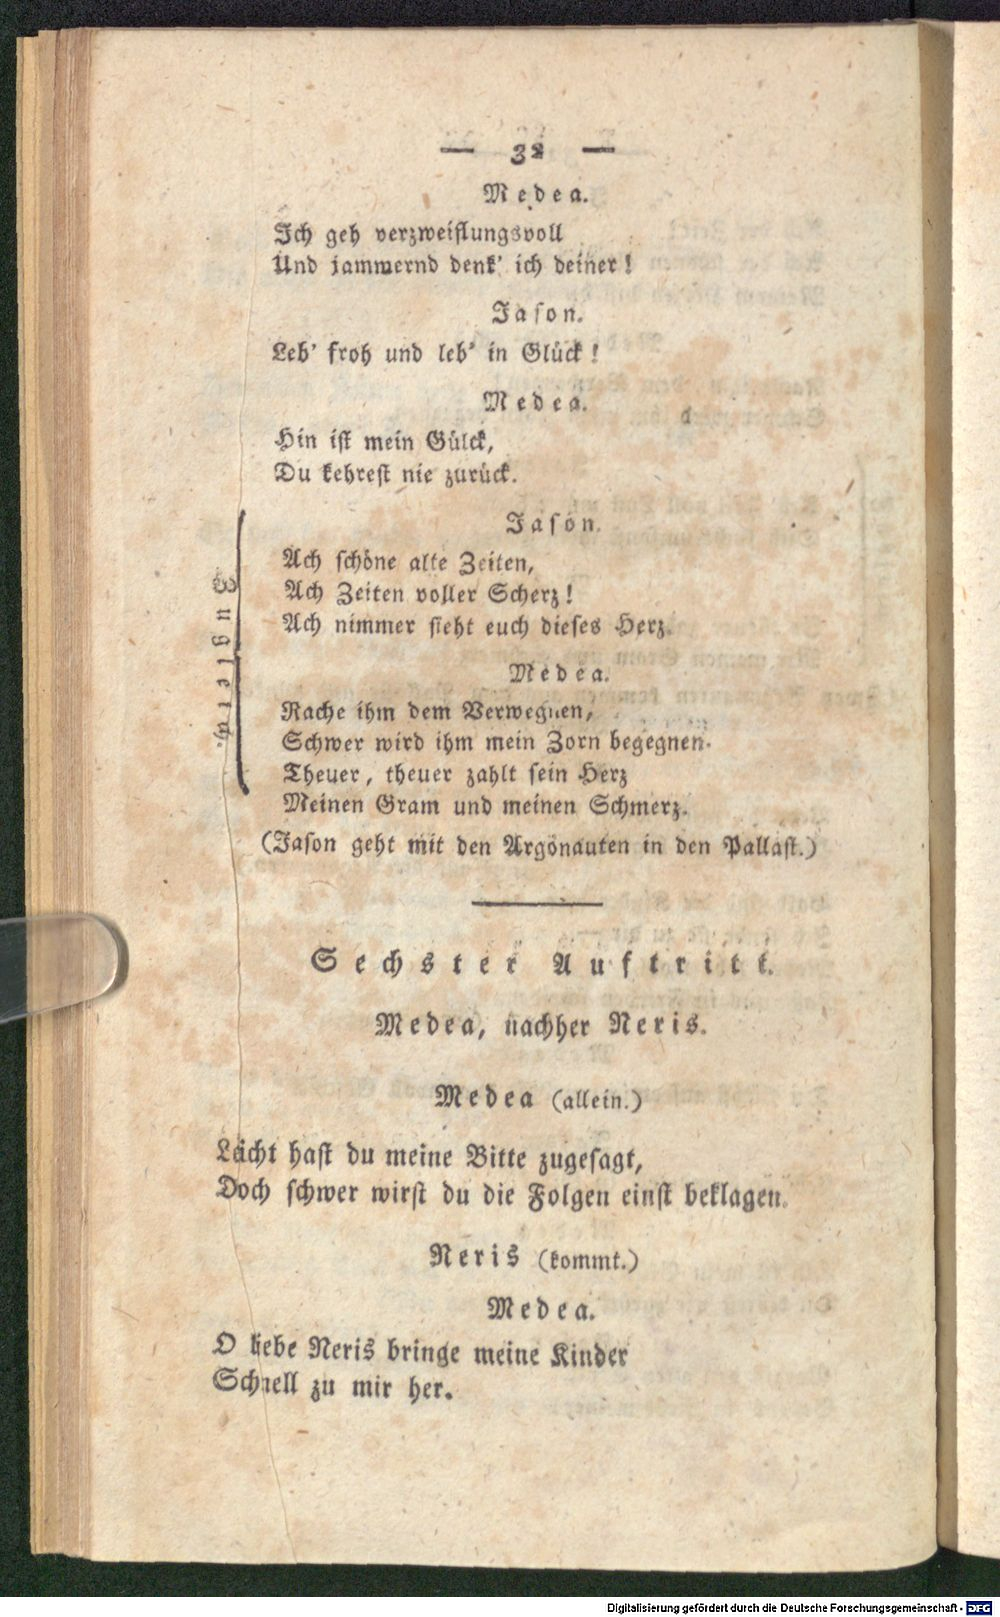 — 32 —
Medea.
Ich geh verzweiflungsvoll
Und jammernd denk' ich deiner!
Jason.
Leb' froh und leb' in Glück!
Medea.
Hin ist mein Gülck,
Du kehrest nie zurück.
Jason.
Ach schöne alte Zeiten,
Ach Zeiten voller Scherz!
Ach nimmer sieht euch dieses Herz.
Zugleich.
Medea.
Rache ihm dem Verwegnen,
Schwer wird ihm mein Zorn begegnen.
Theuer, theuer zahlt sein Herz
Meinen Gram und meinen Schmerz.
(Jason geht mit den Argonauten in den Pallast.)
Sechster Auftritt.
Medea, nachher Neris.
Medea (allein.)
Leicht hast du meine Bitte zugesagt,
Doch schwer wirst du die Folgen einst beklagen.
Neris (kommt.)
Medea.
O liebe Neris bringe meine Kinder
Schnell zu mir her.
Digitalisierung gefördert durch die Deutsche Forschungsgemeinschaft - DFG